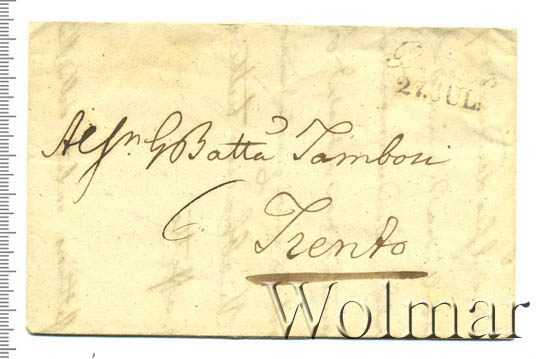 27. JUL.
Al Sn. G Batta Tambosi
6
Trento
Wolmar